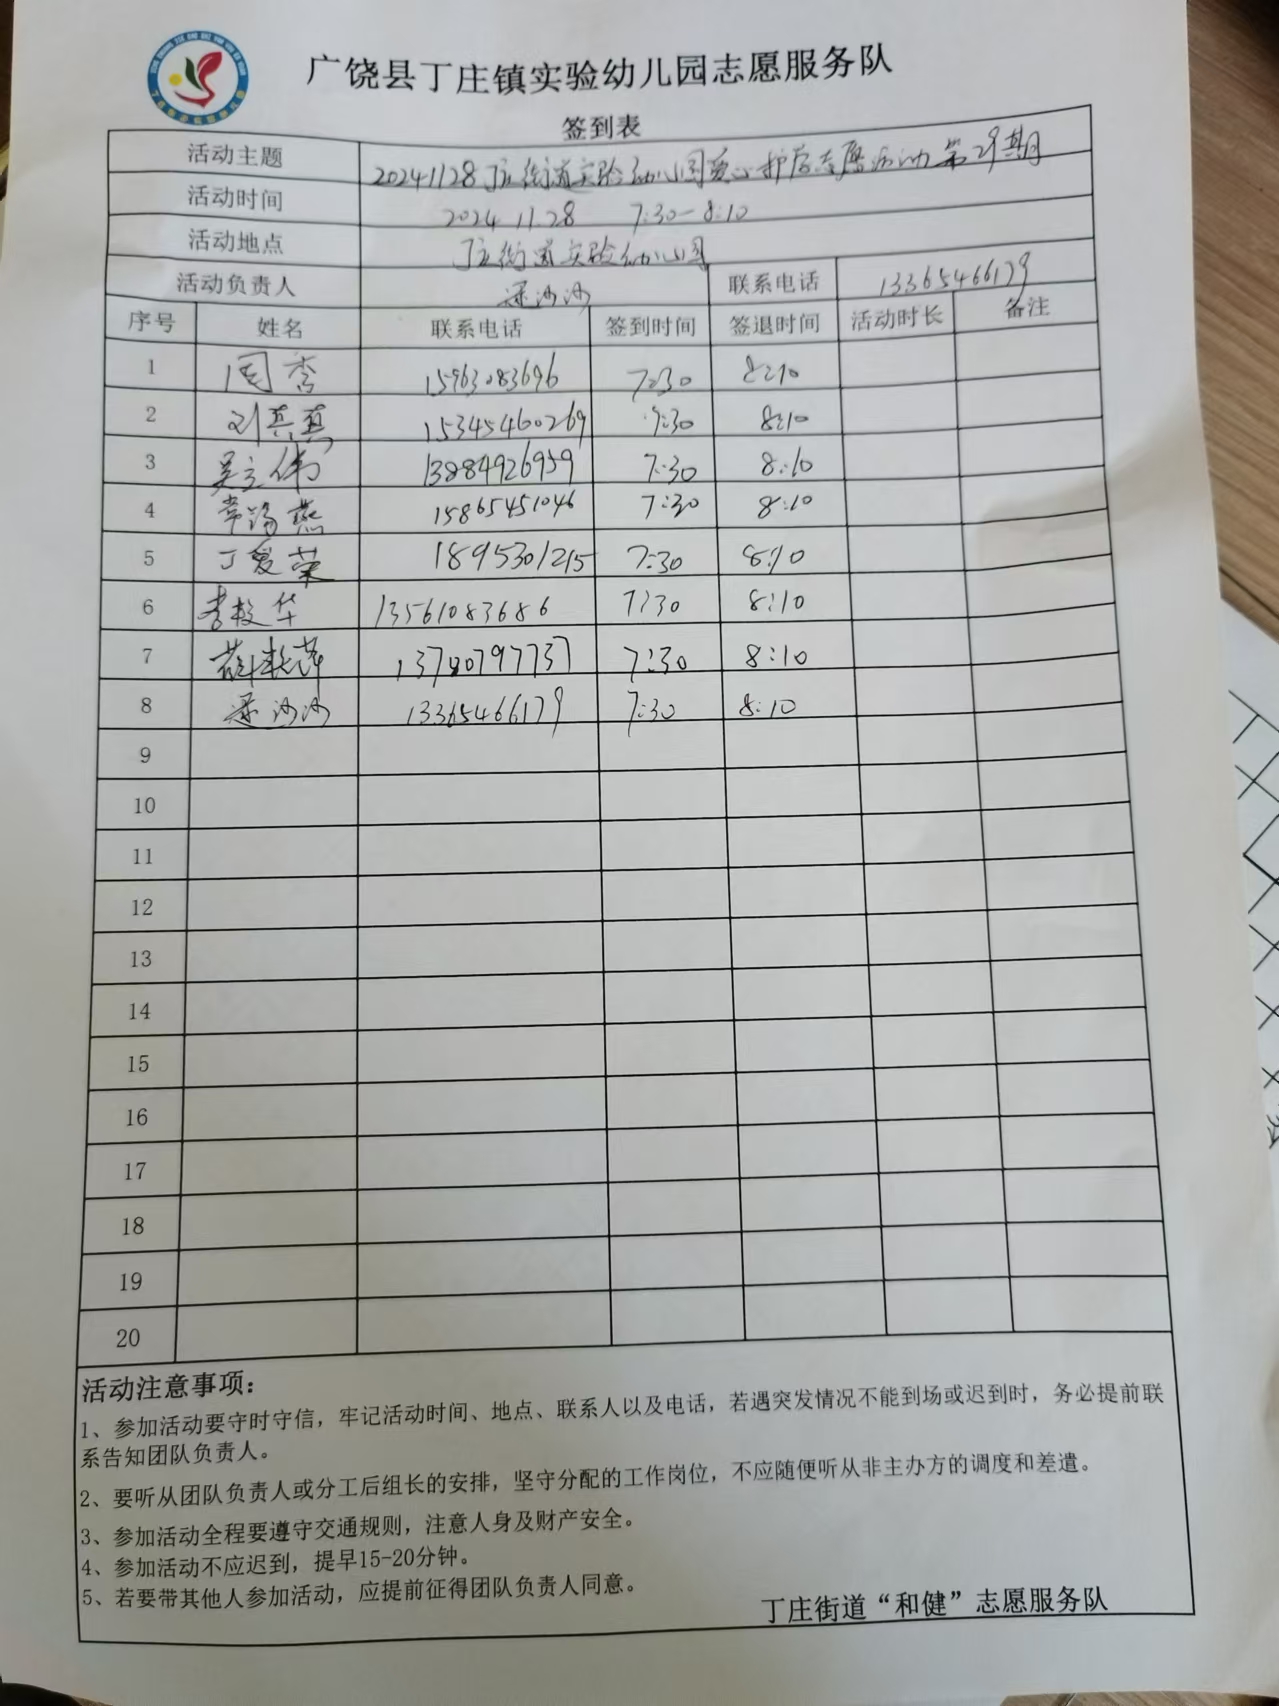 广饶县丁庄镇实验幼儿园志愿服务队
签到表
活动主题 20241128丁庄街道实验幼儿园爱心护学志愿活动第29期
活动时间 2024 11.28 7:30-8:10
活动地点 丁庄街道实验幼儿园
活动负责人 梁沙沙 联系电话 13365466179
序号 姓名 联系电话 签到时间 签退时间 活动时长 备注
1 周香 15963083696 7:30 8:10
2 刘真真 15345460269 7:30 8:10
3 吴立伟 13884926959 7:30 8:10
4 常海燕 15865451046 7:30 8:10
5 丁爱荣 1895301215 7:30 8:10
6 李校华 13561083686 7:30 8:10
7 13780797737 7:30 8:10
8 梁沙沙 13365466179 7:30 8:10
9
10
11
12
13
14
15
16
17
18
19
20
活动注意事项：
1、参加活动要守时守信，牢记活动时间、地点、联系人以及电话，若遇突发情况不能到场或迟到时，务必提前联
系告知团队负责人。
2、要听从团队负责人或分工后组长的安排，坚守分配的工作岗位，不应随便听从非主办方的调度和差遣。
3、参加活动全程要遵守交通规则，注意人身及财产安全。
4、参加活动不应迟到，提早15-20分钟。
5、若要带其他人参加活动，应提前征得团队负责人同意。
丁庄街道“和健”志愿服务队